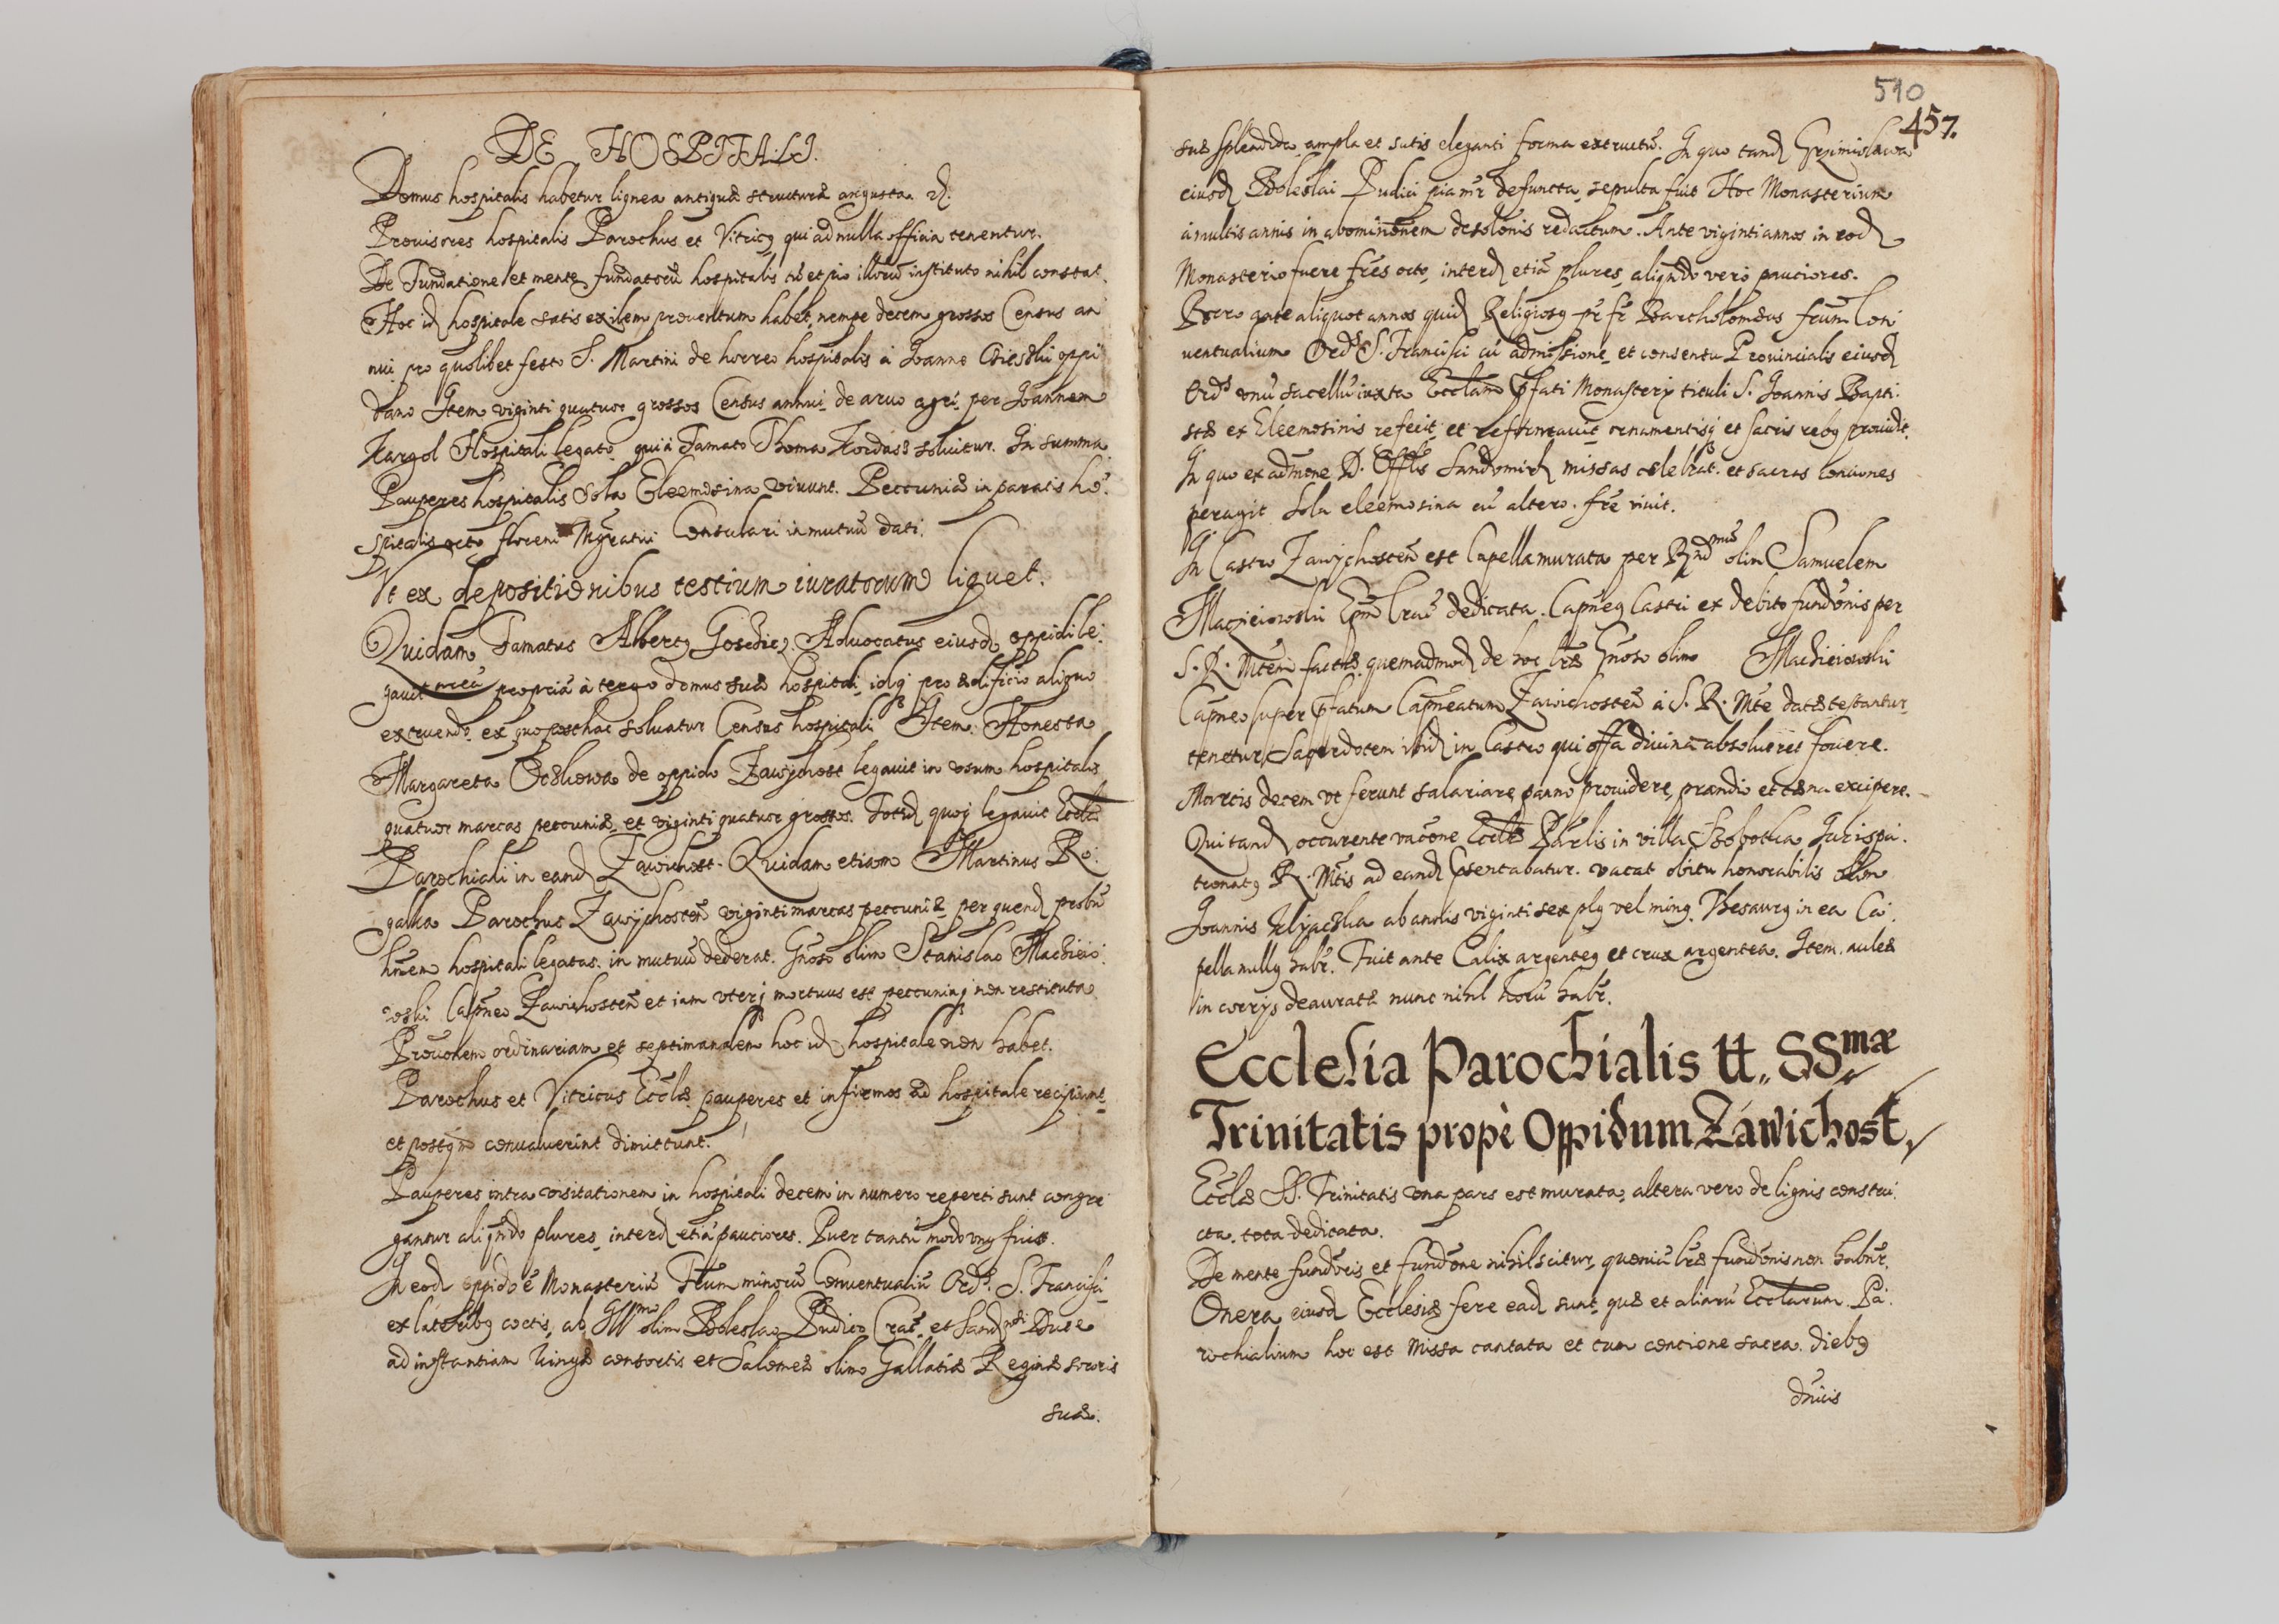 DE HOSPITALI.
Domus hospitalis habetur lignea antiquæ structuræ angusta
Prouisores hospitalis Parochus et Vitricꝯ qui ad nulla officia tenentur.
De Fundatione et mente fundatorũ hospitalis et pio illorũ instituto nihil constat.
Hoc id hospitale satis exilem prouentum habet, nempe decem grossos Census an
nui pro quolibet festo S. Martini de horreo hospitalis à Joanne oppi
dano Item viginti quatuor grossos Census annui de aruo agri per Joannem
Kargol Hospitali legato qui à Famato Thoma Kordass soluitur. In summa
Pauperes hospitalis sola Eleemosina viuunt. Peccuniæ in paratis ho
spitalis octo floreni Mgratui Consulari in mutuũ dati.
Vt ex depositionibus testium iuratorum liquet.
Quidam Famatus Albertꝯ Aduocatus eiusd oppidi le
gauit propriã à tergo domus suæ hospitali, idq pro ædificio aliquo
extruendo ex quo posthac soluatur Census hospitali Item Honesta
Margareta de oppido Zawychost legauit in vsum hospitalis
quatuor marcas peccuniæ et viginti quatuor grossos. quoq legauit Eccles
Parochiali in eand Zawichost. Quidam etiam Martinus Ro
galka Parochus Zawychosteñ viginti marcas peccuniæ per quend probũ
hoĩem hospitali legatas in mutuũ dederat. Gnoso olim Stanislao Macieio
wski Capneo Zawichosteñ et iam vterq mortuus est peccuniaq non restituta
Prouonem ordinariam et septimanalem hoc id hospitale non habet.
Parochus et Vitricus Eccĺæ pauperes et infirmos ad hospitale recipiunt
et postq̃ conualuerint dimittunt.
Pauperes intra visitationem in hospitali decem in numero reperti sunt congre
gantur aliqñdo plures, interd etiã pauciores. Puer tantũ modo vnꝯ fuit.
In eod oppido ẽ Monasteriũ Frum minorũ Conuentualiũ Ords. S. Francisci
ex lateribꝯ coctis, ab Illmo olim Boleslao Pudico Crac. et Sandri Duce
ad instantiam Kingæ consortis et Salomeæ olim Gallatiæ Reginæ sororis
suæ.
510
457.
suæ splendida ampla et satis eleganti forma extructũ. In quo tand Grzimislawa
eiusd Boleslai Pudici pia mr̃ defuncta, sepulta fuit Hoc Monasterium
à multis annis in abominõnem desolõnis redactum. Ante viginti annos in eod
Monasterio fuere fres octo, interd etiã plures, aliqñdo verò pauciores.
Porro ante aliquot annos quid Religiosꝯ pr̃ fr̃ Bartholomæus frum Con
uentualium Ords S. Francisci cũ admissione et consensu Prouincialis eiusd
Ords vnũ sacellũ iuxta Ecclam Monasterij tituli S. Joannis Bapti
stæ ex Eleemosinis refecit et reformauit, ornamentisq et sacris rebꝯ prouidit.
In quo ex admõne D. Offlis Sandomir missas celebrat. et sacras conciones
peragit sola eleemosina cũ altero fre viuit.
In Castro Zawychosteñ est Capella murata per Rndmũ olim Samuelem
Macieiowski Epm Crac dedicata. Capneꝯ Castri ex debito fundõnis per
S. R. Mtem factæ quemadmod de hoc lræ Gnoso olim Macieiowski
Capneo super Capneatum Zawichosteñ à S. R. Mte datæ testantur
tenetur Sacerdotem ibid in Castro qui offa diuina absolueret fouere.
Marcis decem vt ferunt salariare panno prouidere, prandio et cæna excipere.
Qui tand occurrente vacõne Eccĺæ Párlis in villa Szobotka Jurispa
tronatꝯ R. Mtis ad eand psentabatur. vacat obitu honorabilis olim
Joannis ab annis viginti sex plꝯ vel minꝯ. Thesaurꝯ in ea Ca
pella nullꝯ habr̃. Fuit ante Calix argenteꝯ et crux argentea. Item
in corrijs deauratæ nunc nihil horũ habr̃.
Ecclesia Parochialis tt. SSmæ
Trinitatis propè Oppidum Zawichost
Eccĺæ SS. Trinitatis vna pars est murata, altera vero de lignis constru
cta. tota dedicata.
De mente fundoris et fundõne nihil scitur, quoniã lræ fundõnis non habñr.
Onera eiusd Ecclesiæ fere ead sunt, quæ et aliarũ Ecclarum Pa
rochialium hoc est Missa cantata et cum concione sacra diebꝯ
dñicis